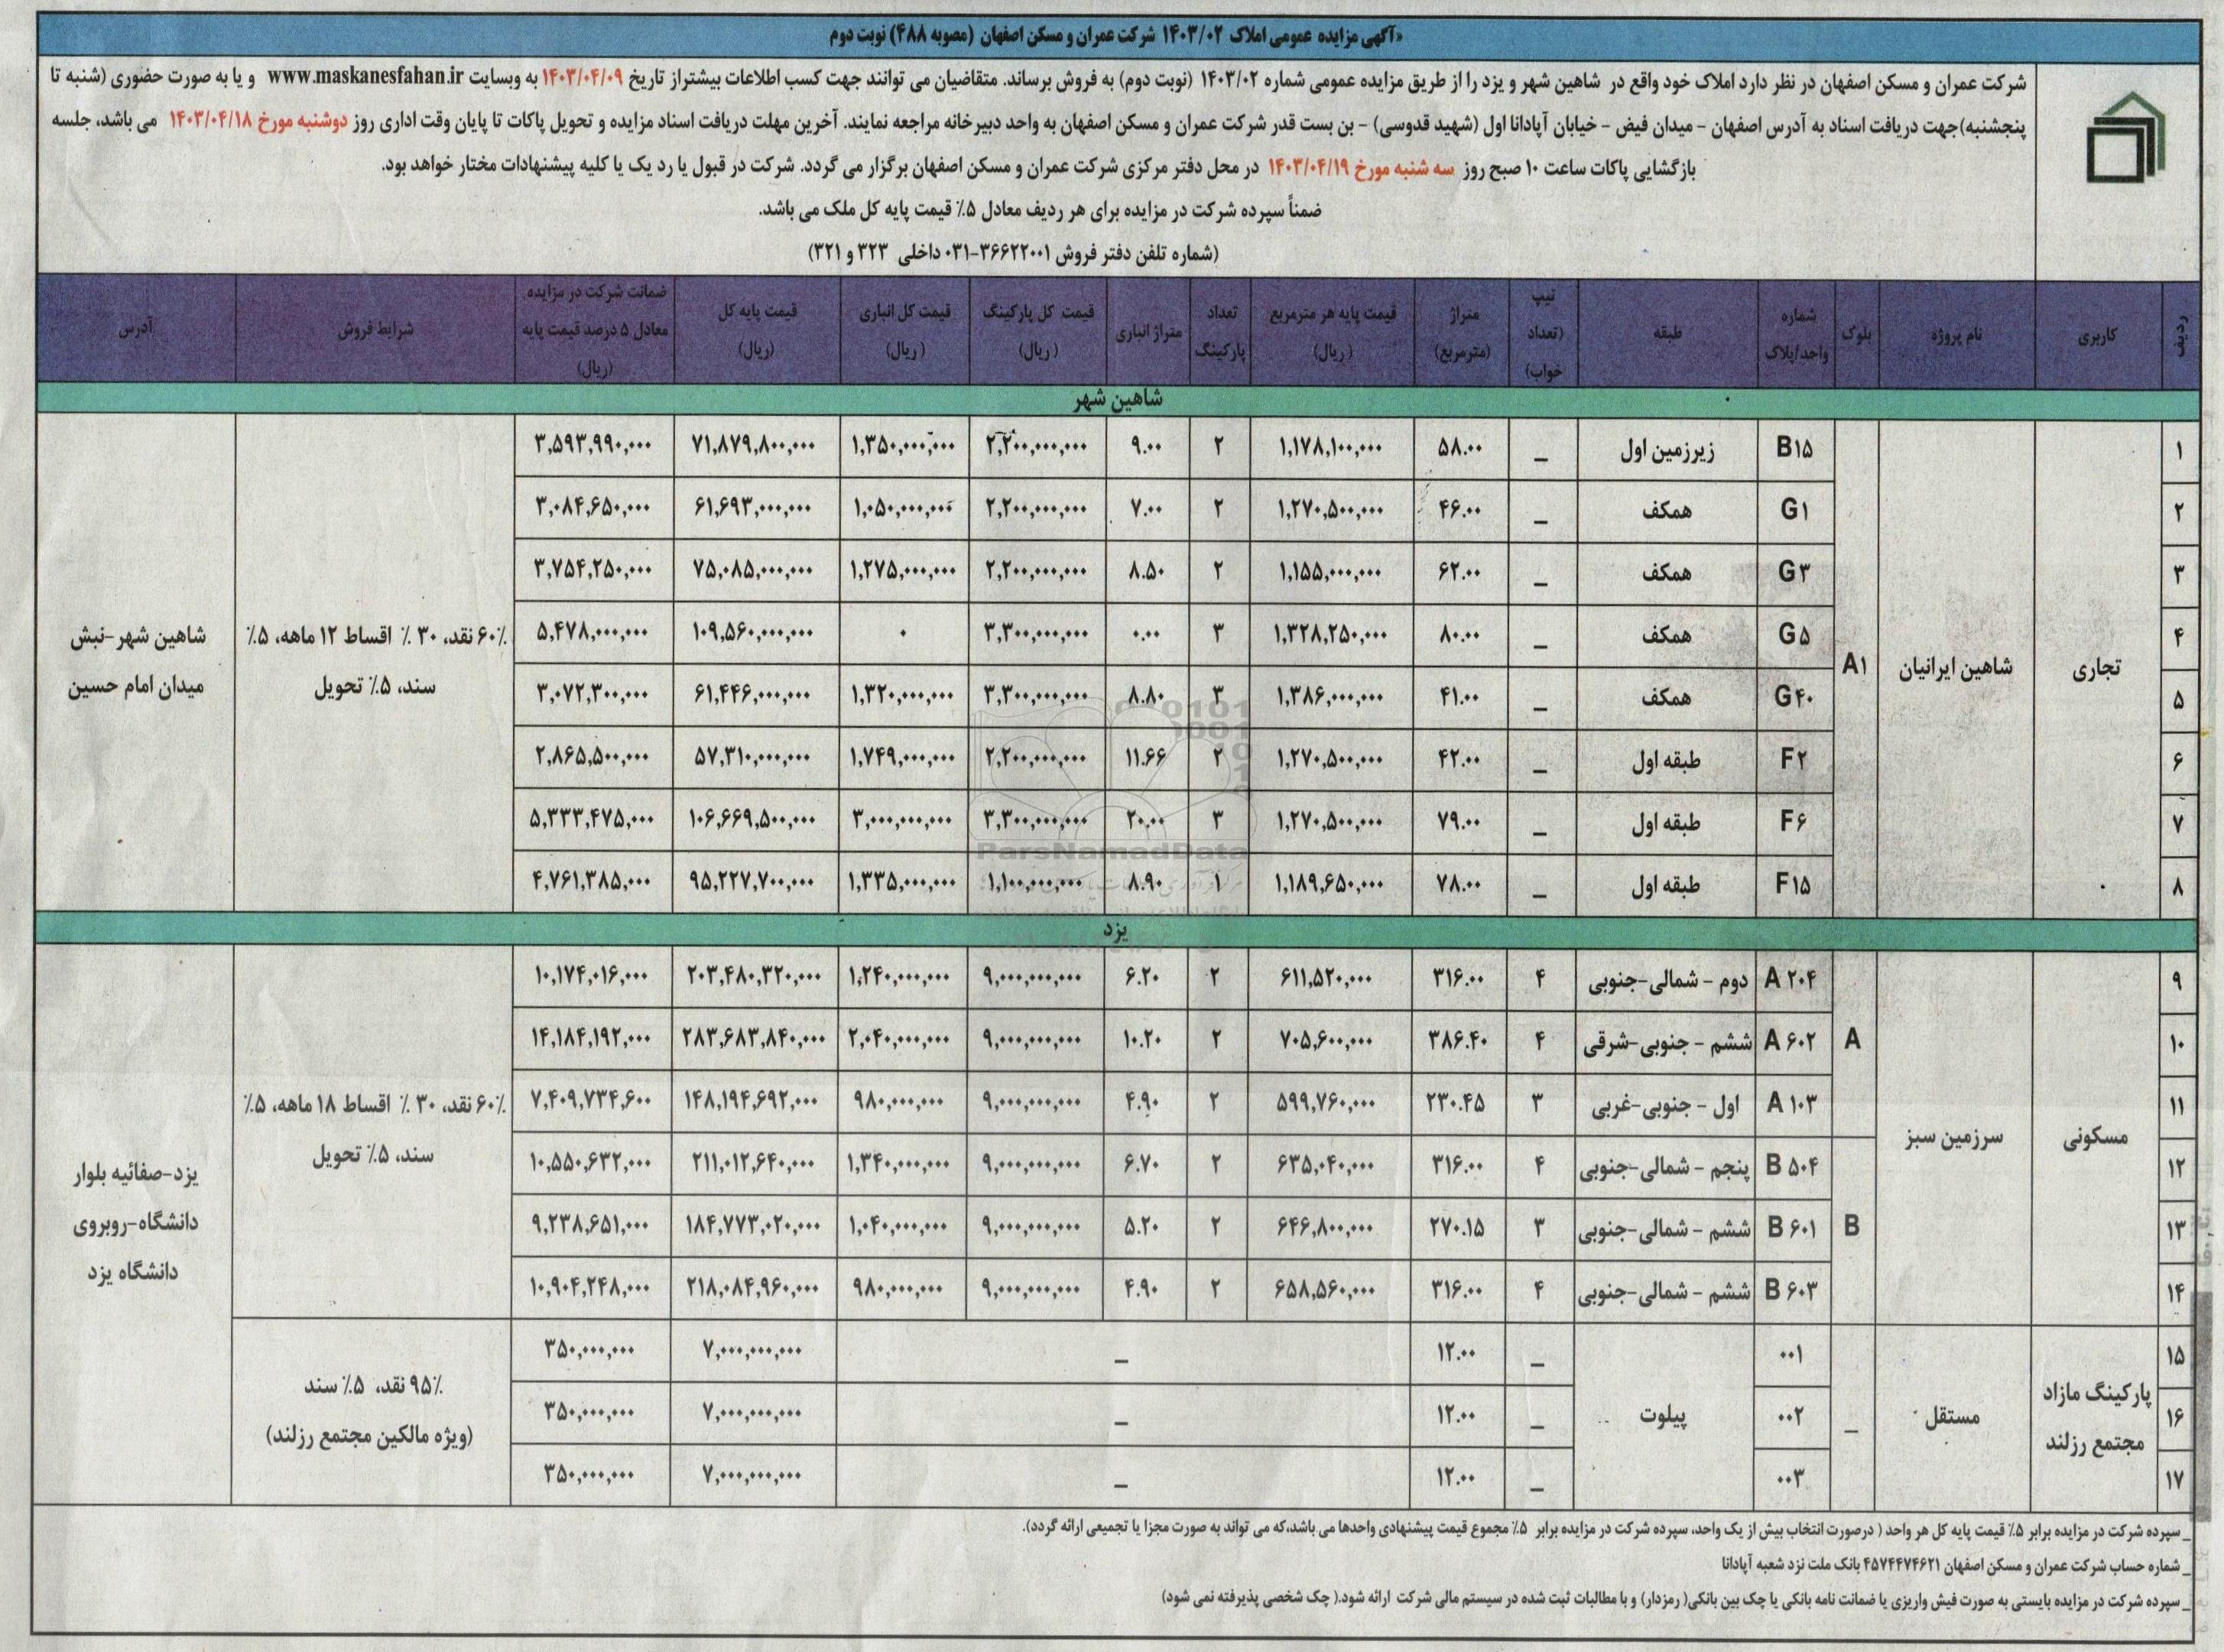 «آگهی مزایده عمومی املاک ۱۴۰۳/۰۲ شرکت عمران و مسکن اصفهان (مصوبه ۴۸۸) نوبت دوم
شرکت عمران و مسکن اصفهان در نظر دارد املاک خود واقع در شاهین شهر و یزد را از طریق مزایده عمومی شماره ۱۴۰۳/۰۲ (نوبت دوم) به فروش برساند. متقاضیان می توانند جهت کسب اطلاعات بیشتراز تاریخ ۱۴۰۳/۰۴/۰۹ به وبسایت www.maskanesfahan.ir و یا به صورت حضوری (شنبه تا
پنجشنبه)جهت دریافت اسناد به آدرس اصفهان - میدان فیض - خیابان آپادانا اول (شهید قدوسی) - بن بست قدر شرکت عمران و مسکن اصفهان به واحد دبیرخانه مراجعه نمایند. آخرین مهلت دریافت اسناد مزایده و تحویل پاکات تا پایان وقت اداری روز دوشنبه مورخ ۱۴۰۳/۰۴/۱۸ می باشد، جلسه
بازگشایی پاکات ساعت ۱۰ صبح روز سه شنبه مورخ ۱۴۰۳/۰۴/۱۹ در محل دفتر مرکزی شرکت عمران و مسکن اصفهان برگزار می گردد. شرکت در قبول یا رد یک یا کلیه پیشنهادات مختار خواهد بود.
ضمناً سپرده شرکت در مزایده برای هر ردیف معادل ۵٪ قیمت پایه کل ملک می باشد.
(شماره تلفن دفتر فروش ۳۶۶۲۲۰۰۱-۰۳۱ داخلی ۳۲۳ و ۳۲۱)
ردیف کاربری نام پروژه بلوک شماره واحد/پلاک طبقه تیپ (تعداد خواب) متراژ (مترمربع) قیمت پایه هر مترمربع (ریال) تعداد پارکینگ متراژ انباری قیمت کل پارکینگ (ریال) قیمت کل انباری (ریال) قیمت پایه کل (ریال) ضمانت شرکت در مزایده معادل ۵ درصد قیمت پایه (ریال) شرایط فروش آدرس
شاهین شهر
۱ B۱۵ زیرزمین اول _ ۵۸.۰۰ ۱,۱۷۸,۱۰۰,۰۰۰ ۲ ۹.۰۰ ۲,۲۰۰,۰۰۰,۰۰۰ ۱,۳۵۰,۰۰۰,۰۰۰ ۷۱,۸۷۹,۸۰۰,۰۰۰ ۳,۵۹۳,۹۹۰,۰۰۰
۲ G۱ همکف _ ۴۶.۰۰ ۱,۲۷۰,۵۰۰,۰۰۰ ۲ ۷.۰۰ ۲,۲۰۰,۰۰۰,۰۰۰ ۱,۰۵۰,۰۰۰,۰۰۰ ۶۱,۶۹۳,۰۰۰,۰۰۰ ۳,۰۸۴,۶۵۰,۰۰۰
۳ G۳ همکف _ ۶۲.۰۰ ۱,۱۵۵,۰۰۰,۰۰۰ ۲ ۸.۵۰ ۲,۲۰۰,۰۰۰,۰۰۰ ۱,۲۷۵,۰۰۰,۰۰۰ ۷۵,۰۸۵,۰۰۰,۰۰۰ ۳,۷۵۴,۲۵۰,۰۰۰
۴ G۵ همکف _ ۸۰.۰۰ ۱,۳۲۸,۲۵۰,۰۰۰ ۳ ۰.۰۰ ۳,۳۰۰,۰۰۰,۰۰۰ ۰ ۱۰۹,۵۶۰,۰۰۰,۰۰۰ ۵,۴۷۸,۰۰۰,۰۰۰
تجاری شاهین ایرانیان A۱ ۶۰٪ نقد، ۳۰ ٪ اقساط ۱۲ ماهه، ۵٪ سند، ۵٪ تحویل شاهین شهر-نبش میدان امام حسین
۵ G۴۰ همکف _ ۴۱.۰۰ ۱,۳۸۶,۰۰۰,۰۰۰ ۳ ۸.۸۰ ۳,۳۰۰,۰۰۰,۰۰۰ ۱,۳۲۰,۰۰۰,۰۰۰ ۶۱,۴۴۶,۰۰۰,۰۰۰ ۳,۰۷۲,۳۰۰,۰۰۰
۶ F۲ طبقه اول _ ۴۲.۰۰ ۱,۲۷۰,۵۰۰,۰۰۰ ۲ ۱۱.۶۶ ۲,۲۰۰,۰۰۰,۰۰۰ ۱,۷۴۹,۰۰۰,۰۰۰ ۵۷,۳۱۰,۰۰۰,۰۰۰ ۲,۸۶۵,۵۰۰,۰۰۰
۷ F۶ طبقه اول _ ۷۹.۰۰ ۱,۲۷۰,۵۰۰,۰۰۰ ۳ ۲۰.۰۰ ۳,۳۰۰,۰۰۰,۰۰۰ ۳,۰۰۰,۰۰۰,۰۰۰ ۱۰۶,۶۶۹,۵۰۰,۰۰۰ ۵,۳۳۳,۴۷۵,۰۰۰
ParsNamadData
۸ F۱۵ طبقه اول _ ۷۸.۰۰ ۱,۱۸۹,۶۵۰,۰۰۰ ۱ ۸.۹۰ ۱,۱۰۰,۰۰۰,۰۰۰ ۱,۳۳۵,۰۰۰,۰۰۰ ۹۵,۲۲۷,۷۰۰,۰۰۰ ۴,۷۶۱,۳۸۵,۰۰۰
یزد
۹ A ۲۰۴ دوم - شمالی-جنوبی ۴ ۳۱۶.۰۰ ۶۱۱,۵۲۰,۰۰۰ ۲ ۶.۲۰ ۹,۰۰۰,۰۰۰,۰۰۰ ۱,۲۴۰,۰۰۰,۰۰۰ ۲۰۳,۴۸۰,۳۲۰,۰۰۰ ۱۰,۱۷۴,۰۱۶,۰۰۰
۱۰ A A ۶۰۲ ششم - جنوبی-شرقی ۴ ۳۸۶.۴۰ ۷۰۵,۶۰۰,۰۰۰ ۲ ۱۰.۲۰ ۹,۰۰۰,۰۰۰,۰۰۰ ۲,۰۴۰,۰۰۰,۰۰۰ ۲۸۳,۶۸۳,۸۴۰,۰۰۰ ۱۴,۱۸۴,۱۹۲,۰۰۰
۱۱ A ۱۰۳ اول - جنوبی-غربی ۳ ۲۳۰.۴۵ ۵۹۹,۷۶۰,۰۰۰ ۲ ۴.۹۰ ۹,۰۰۰,۰۰۰,۰۰۰ ۹۸۰,۰۰۰,۰۰۰ ۱۴۸,۱۹۴,۶۹۲,۰۰۰ ۷,۴۰۹,۷۳۴,۶۰۰
مسکونی سرزمین سبز ۶۰٪ نقد، ۳۰ ٪ اقساط ۱۸ ماهه، ۵٪ سند، ۵٪ تحویل
۱۲ B ۵۰۴ پنجم - شمالی-جنوبی ۴ ۳۱۶.۰۰ ۶۳۵,۰۴۰,۰۰۰ ۲ ۶.۷۰ ۹,۰۰۰,۰۰۰,۰۰۰ ۱,۳۴۰,۰۰۰,۰۰۰ ۲۱۱,۰۱۲,۶۴۰,۰۰۰ ۱۰,۵۵۰,۶۳۲,۰۰۰
یزد-صفائیه بلوار دانشگاه-روبروی دانشگاه یزد
۱۳ B B ۶۰۱ ششم - شمالی-جنوبی ۳ ۲۷۰.۱۵ ۶۴۶,۸۰۰,۰۰۰ ۲ ۵.۲۰ ۹,۰۰۰,۰۰۰,۰۰۰ ۱,۰۴۰,۰۰۰,۰۰۰ ۱۸۴,۷۷۳,۰۲۰,۰۰۰ ۹,۲۳۸,۶۵۱,۰۰۰
۱۴ B ۶۰۳ ششم - شمالی-جنوبی ۴ ۳۱۶.۰۰ ۶۵۸,۵۶۰,۰۰۰ ۲ ۴.۹۰ ۹,۰۰۰,۰۰۰,۰۰۰ ۹۸۰,۰۰۰,۰۰۰ ۲۱۸,۰۸۴,۹۶۰,۰۰۰ ۱۰,۹۰۴,۲۴۸,۰۰۰
۱۵ ۰۰۱ _ ۱۲.۰۰ _ ۷,۰۰۰,۰۰۰,۰۰۰ ۳۵۰,۰۰۰,۰۰۰
پارکینگ مازاد مجتمع رزلند مستقل _ پیلوت ۹۵٪ نقد، ۵٪ سند (ویژه مالکین مجتمع رزلند)
۱۶ ۰۰۲ _ ۱۲.۰۰ _ ۷,۰۰۰,۰۰۰,۰۰۰ ۳۵۰,۰۰۰,۰۰۰
۱۷ ۰۰۳ _ ۱۲.۰۰ _ ۷,۰۰۰,۰۰۰,۰۰۰ ۳۵۰,۰۰۰,۰۰۰
_ سپرده شرکت در مزایده برابر ۵٪ قیمت پایه کل هر واحد ( درصورت انتخاب بیش از یک واحد، سپرده شرکت در مزایده برابر ۵٪ مجموع قیمت پیشنهادی واحدها می باشد،که می تواند به صورت مجزا یا تجمیعی ارائه گردد).
_ شماره حساب شرکت عمران و مسکن اصفهان ۴۵۷۴۴۷۴۶۲۱ بانک ملت نزد شعبه آپادانا
_ سپرده شرکت در مزایده بایستی به صورت فیش واریزی یا ضمانت نامه بانکی یا چک بین بانکی( رمزدار) و با مطالبات ثبت شده در سیستم مالی شرکت ارائه شود.( چک شخصی پذیرفته نمی شود)